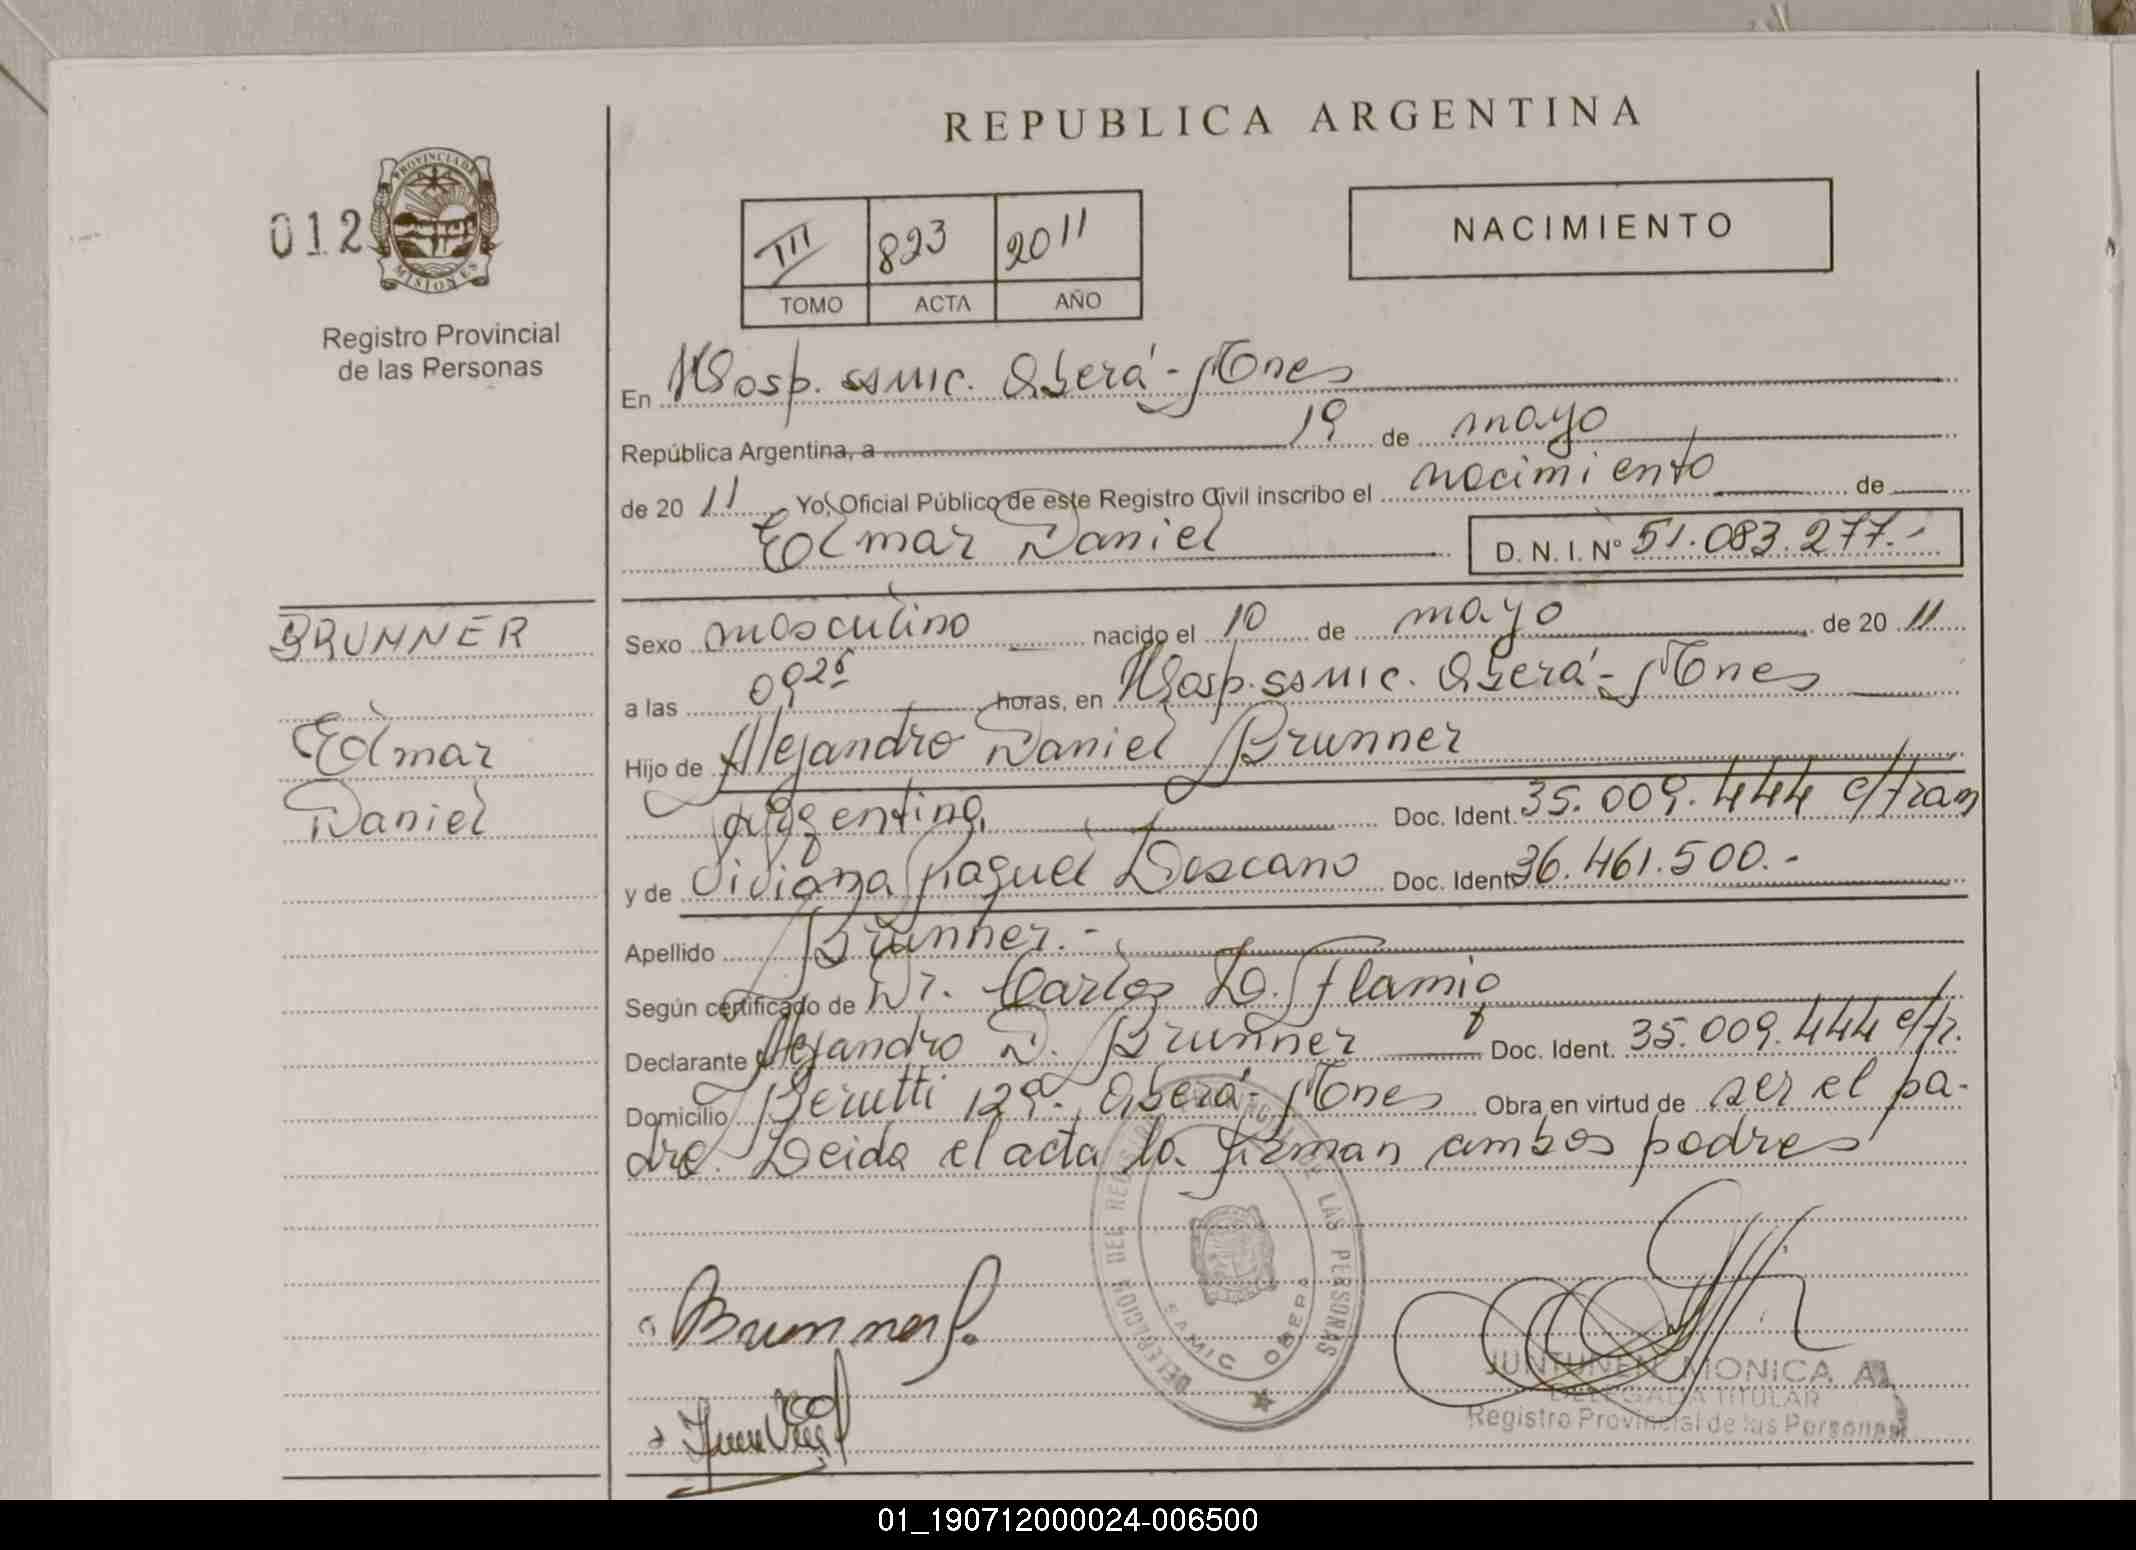 REPUBLICA ARGENTINA
012
PROVINCIA DE
MISIONES
Registro Provincial
de las Personas
III 823 2011
TOMO ACTA AÑO
NACIMIENTO
En Hosp. SAMIC. Oberá - Mnes
República Argentina, a 19 de mayo
de 2011 Yo, Oficial Público de este Registro Civil inscribo el nacimiento de
Edmar Daniel D. N. I. Nº 51.083.277.-
BRUNNER
Edmar
Daniel
Sexo masculino nacido el 10 de mayo de 2011
a las 09 25 horas, en Hosp. SAMIC. Oberá - Mnes
Hijo de Alejandro Daniel Brunner
argentina, Doc. Ident. 35.009.444 c/tram
y de Viviana Raquel Lescano Doc. Ident. 36.461.500.-
Apellido Brunner.-
Según certificado de Dr. Carlos D. Flamio
Declarante Alejandro D. Brunner Doc. Ident. 35.009.444 c/tr.
Domicilio Berutti 129. Oberá - Mnes Obra en virtud de ser el pa-
dre. Leida el acta la firman ambos padres
DELEGACION DEL LAS PERSONAS
SAMIC OBERA
Brunner
JUNTUNEN MONICA A.
DELEGADA TITULAR
Registro Provincial de las Personas
01_190712000024-006500